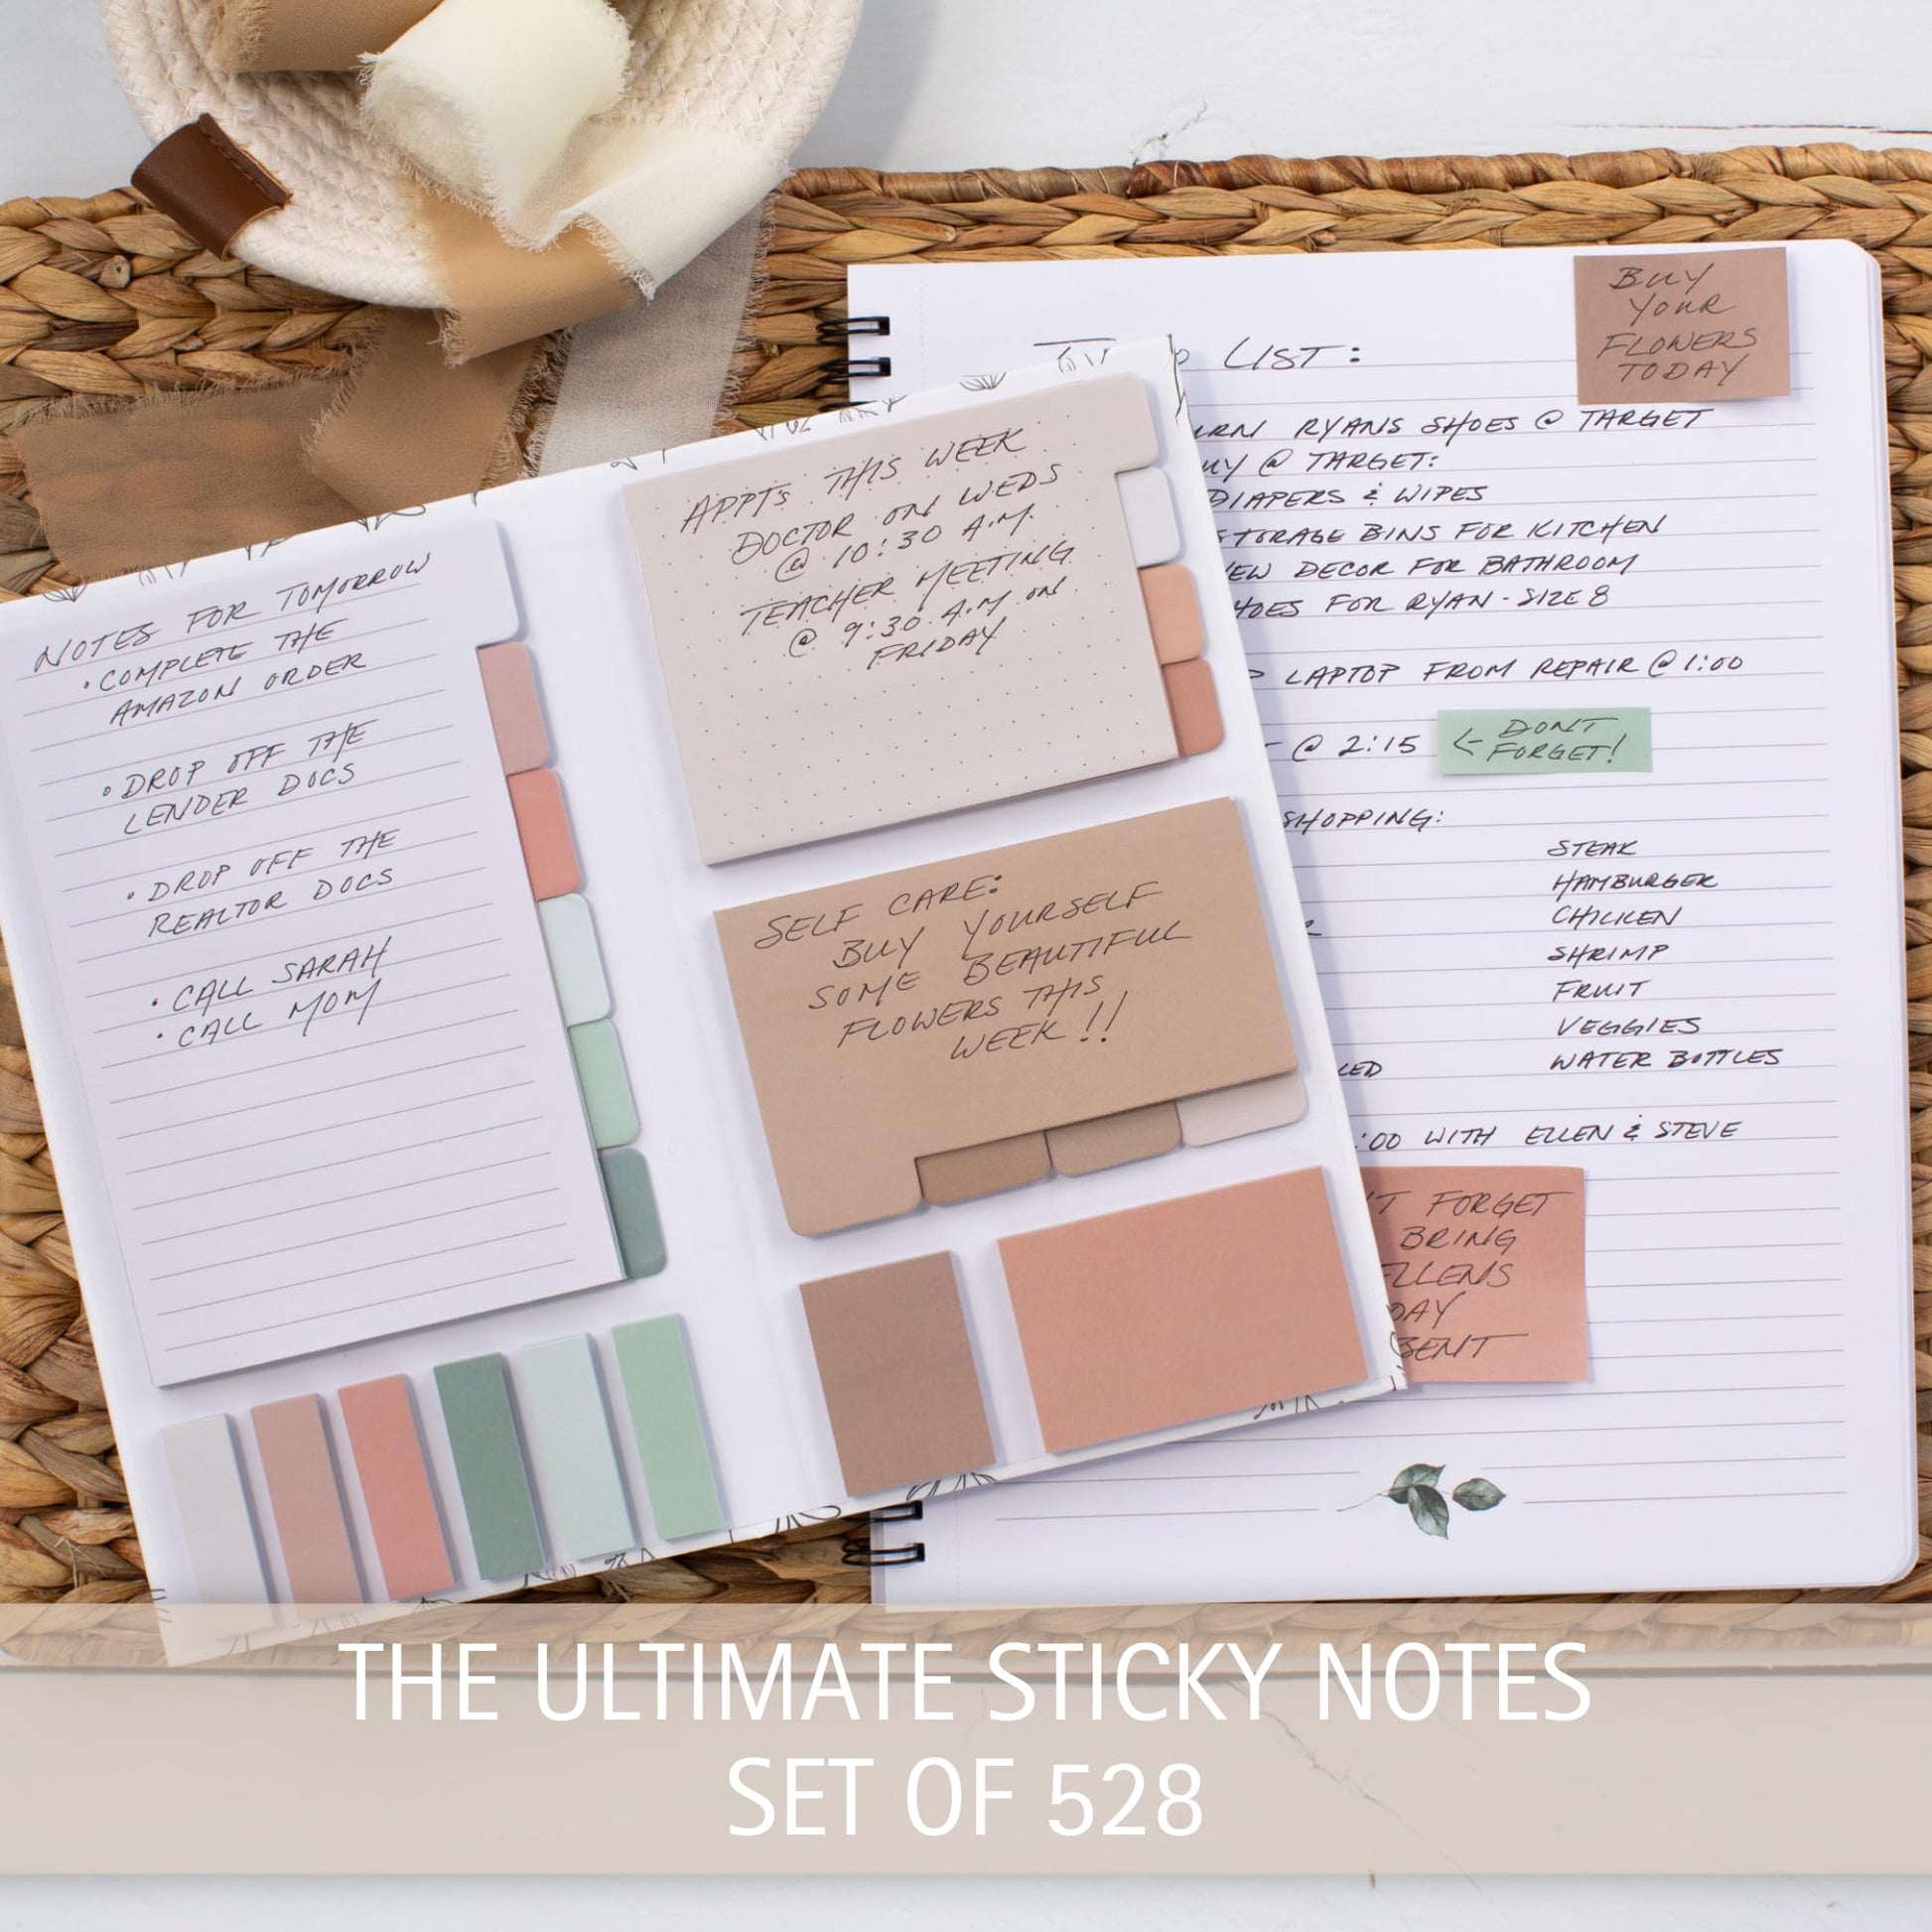 NOTES FOR TOMORROW
• COMPLETE THE
AMAZON ORDER
• DROP OFF THE
LENDER DOCS
• DROP OFF THE
REALTOR DOCS
• CALL SARAH
• CALL MOM
APPTS THIS WEEK
DOCTOR ON WEDS
@ 10:30 A.M.
TEACHER MEETING
@ 9:30 A.M. ON
FRIDAY
SELF CARE:
BUY YOURSELF
SOME BEAUTIFUL
FLOWERS THIS
WEEK!!
LIST:
BUY
YOUR
FLOWERS
TODAY
RYANS SHOES @ TARGET
@ TARGET:
DIAPERS & WIPES
STORAGE BINS FOR KITCHEN
DECOR FOR BATHROOM
FOR RYAN - SIZE 8
LAPTOP FROM REPAIR @ 1:00
@ 2:15
<- DONT
FORGET!
SHOPPING:
STEAK
HAMBURGER
CHICKEN
SHRIMP
FRUIT
VEGGIES
WATER BOTTLES
:00 WITH ELLEN & STEVE
FORGET
BRING
ELLENS
THE ULTIMATE STICKY NOTES
SET OF 528